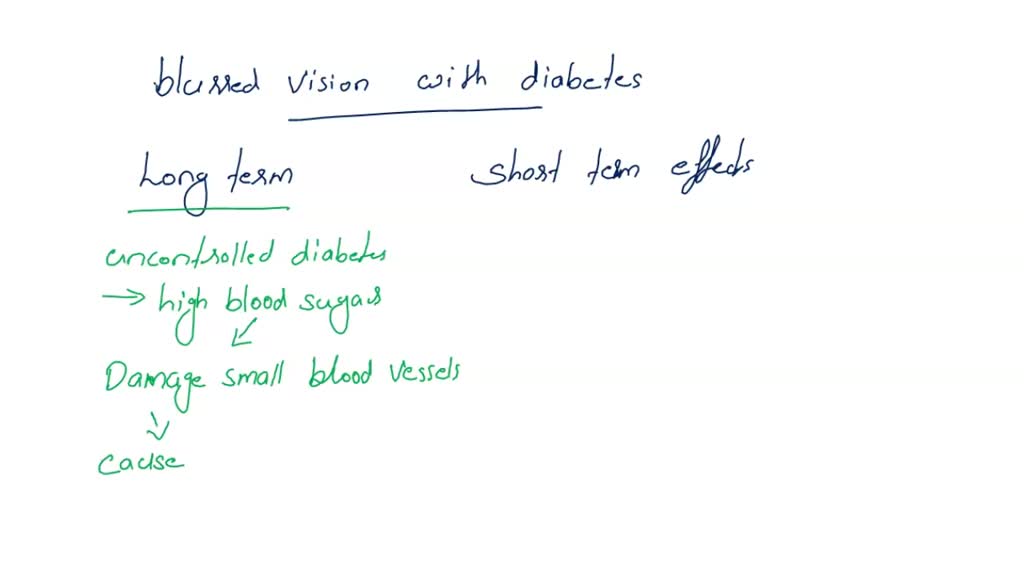 blurred vision with diabetes
Long term
short term effects
uncontrolled diabetes
→ high blood sugars
Damage small blood vessels
cause